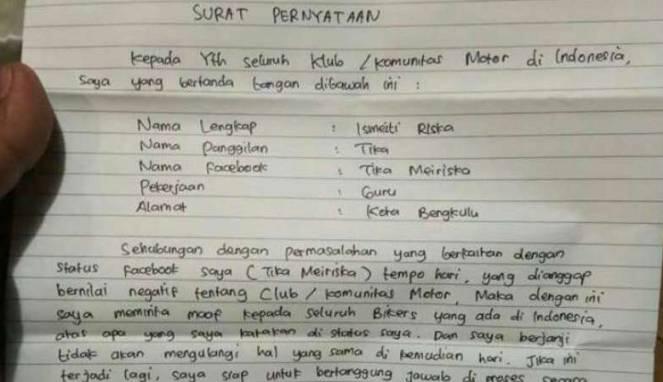 SURAT PERNYATAAN
Kepada Yth seluruh klub / komunitas Motor di Indonesia,
Saya yang bertanda tangan dibawah ini :
Nama Lengkap : Ismeiti Riska
Nama Panggilan : Tika
Nama Facebook : Tika Meiriska
Pekerjaan : Guru
Alamat : Kota Bengkulu
Sehubungan dengan permasalahan yang berkaitan dengan
Status Facebook saya (Tika Meiriska) tempo hari, yang dianggap
bernilai negatif tentang Club / komunitas Motor, Maka dengan ini
saya meminta maaf kepada seluruh Bikers yang ada di Indonesia,
atas apa yang saya katakan di status saya. Dan saya berjanji
tidak akan mengulangi hal yang sama di kemudian hari. Jika ini
terjadi lagi, saya siap untuk bertanggung jawab di proses secara